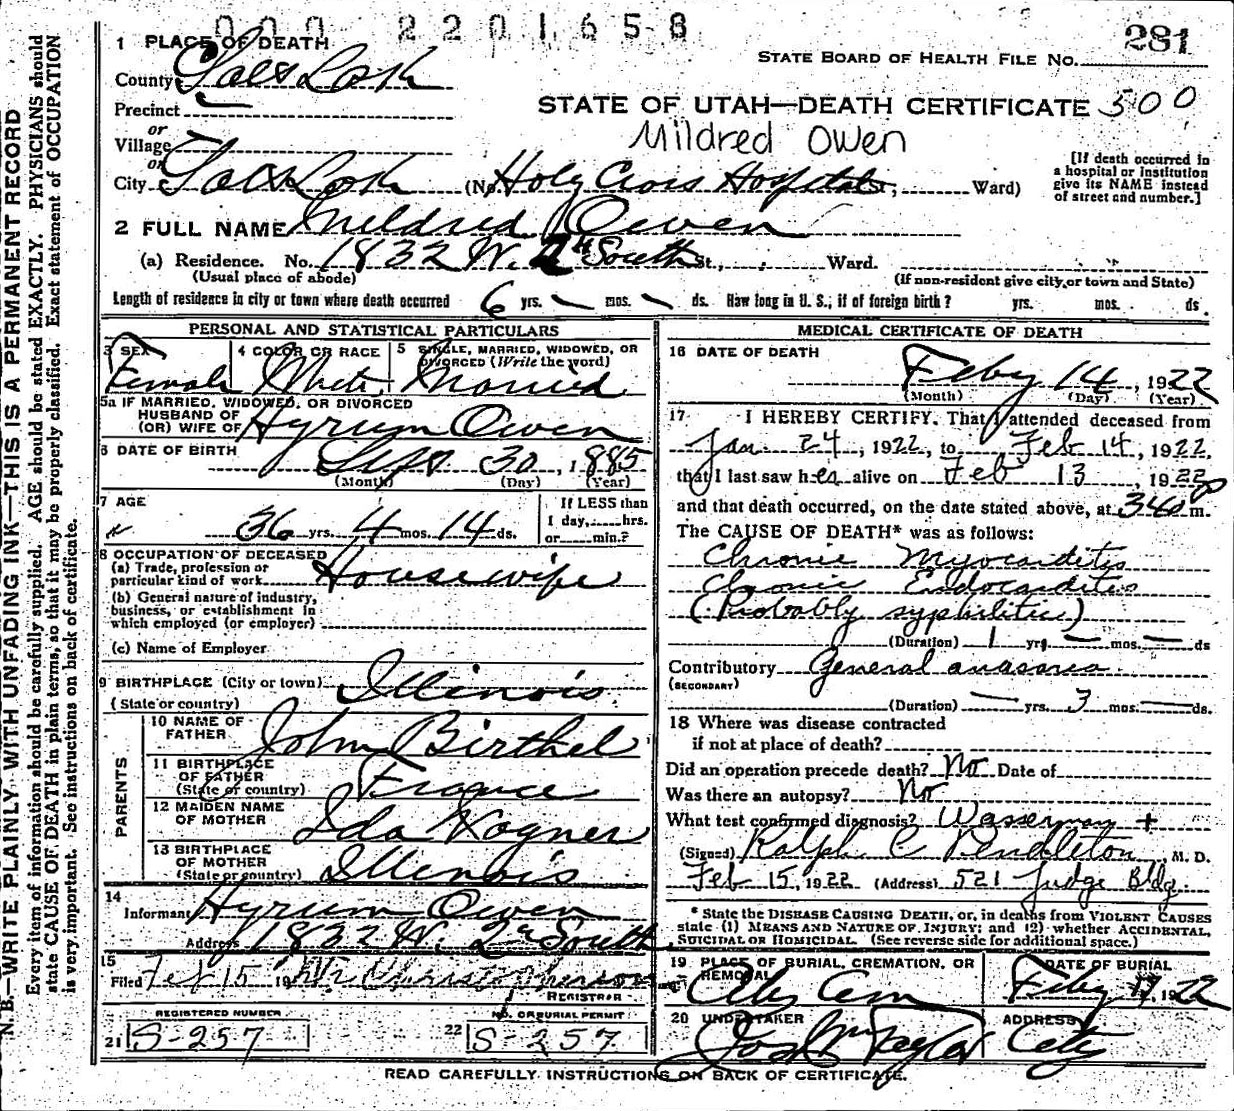 000 2201658
281
1 PLACE OF DEATH
STATE BOARD OF HEALTH FILE No.
County Salt Lake
Precinct
STATE OF UTAH—DEATH CERTIFICATE 500
or
Village
Mildred Owen
or
City Salt Lake (No. Holy Cross Hospital, Ward)
[If death occurred in
a hospital or institution
give its NAME instead
of street and number.]
2 FULL NAME Mildred Owen
(a) Residence. No. 1832 W. 2nd South St., Ward.
(Usual place of abode) (If non-resident give city or town and State)
Length of residence in city or town where death occurred 6 yrs. — mos. — ds. How long in U. S., if of foreign birth? yrs. mos. ds.
PERSONAL AND STATISTICAL PARTICULARS
3 SEX 4 COLOR OR RACE 5 SINGLE, MARRIED, WIDOWED, OR
DIVORCED (Write the word)
Female White Married
5a IF MARRIED, WIDOWED, OR DIVORCED
HUSBAND OF
(OR) WIFE OF Hyrum Owen
6 DATE OF BIRTH Sept 30, 1885
(Month) (Day) (Year)
7 AGE 36 yrs. 4 mos. 14 ds.
If LESS than
1 day,......hrs.
or......min.?
8 OCCUPATION OF DECEASED
(a) Trade, profession or
particular kind of work Housewife
(b) General nature of industry,
business, or establishment in
which employed (or employer)
(c) Name of Employer
9 BIRTHPLACE (City or town) Illinois
(State or country)
PARENTS
10 NAME OF
FATHER John Birthel
11 BIRTHPLACE
OF FATHER
(State or country) France
12 MAIDEN NAME
OF MOTHER Ida Wagner
13 BIRTHPLACE
OF MOTHER
(State or country) Illinois
14
Informant Hyrum Owen
Address 1832 W. 2nd South
15
Filed Feb 15 19
REGISTRAR
REGISTERED NUMBER
21 S-257
NO. OF BURIAL PERMIT
22 S-257
MEDICAL CERTIFICATE OF DEATH
16 DATE OF DEATH
Feby 14, 1922
(Month) (Day) (Year)
17 I HEREBY CERTIFY. That I attended deceased from
Jan 24, 1922, to Feb 14, 1922,
that I last saw her alive on Feb 13 1922
and that death occurred, on the date stated above, at 340 P m.
The CAUSE OF DEATH* was as follows:
Chronic Myocarditis
Chronic Endocarditis
(Probably syphilitic)
(Duration) 1 yrs — mos. — ds
Contributory General anasarca
(SECONDARY)
(Duration) — yrs. 3 mos. — ds.
18 Where was disease contracted
if not at place of death?
Did an operation precede death? No Date of
Was there an autopsy? No
What test confirmed diagnosis? Wasserman +
(Signed) Ralph C Pendleton, M. D.
Feb 15, 1922 (Address) 521 Judge Bldg.
* State the DISEASE CAUSING DEATH, or, in deaths from VIOLENT CAUSES
state (1) MEANS AND NATURE OF INJURY; and (2) whether ACCIDENTAL,
SUICIDAL OR HOMICIDAL. (See reverse side for additional space.)
19 PLACE OF BURIAL, CREMATION, OR
REMOVAL
City Cem
DATE OF BURIAL
Feby 17, 1922
20 UNDERTAKER
Jos Wm Taylor
ADDRESS
City
READ CAREFULLY INSTRUCTIONS ON BACK OF CERTIFICATE.
N. B.—WRITE PLAINLY WITH UNFADING INK—THIS IS A PERMANENT RECORD
Every item of information should be carefully supplied. AGE should be stated EXACTLY. PHYSICIANS should
state CAUSE OF DEATH in plain terms, so that it may be properly classified. Exact statement of OCCUPATION
is very important. See instructions on back of certificate.